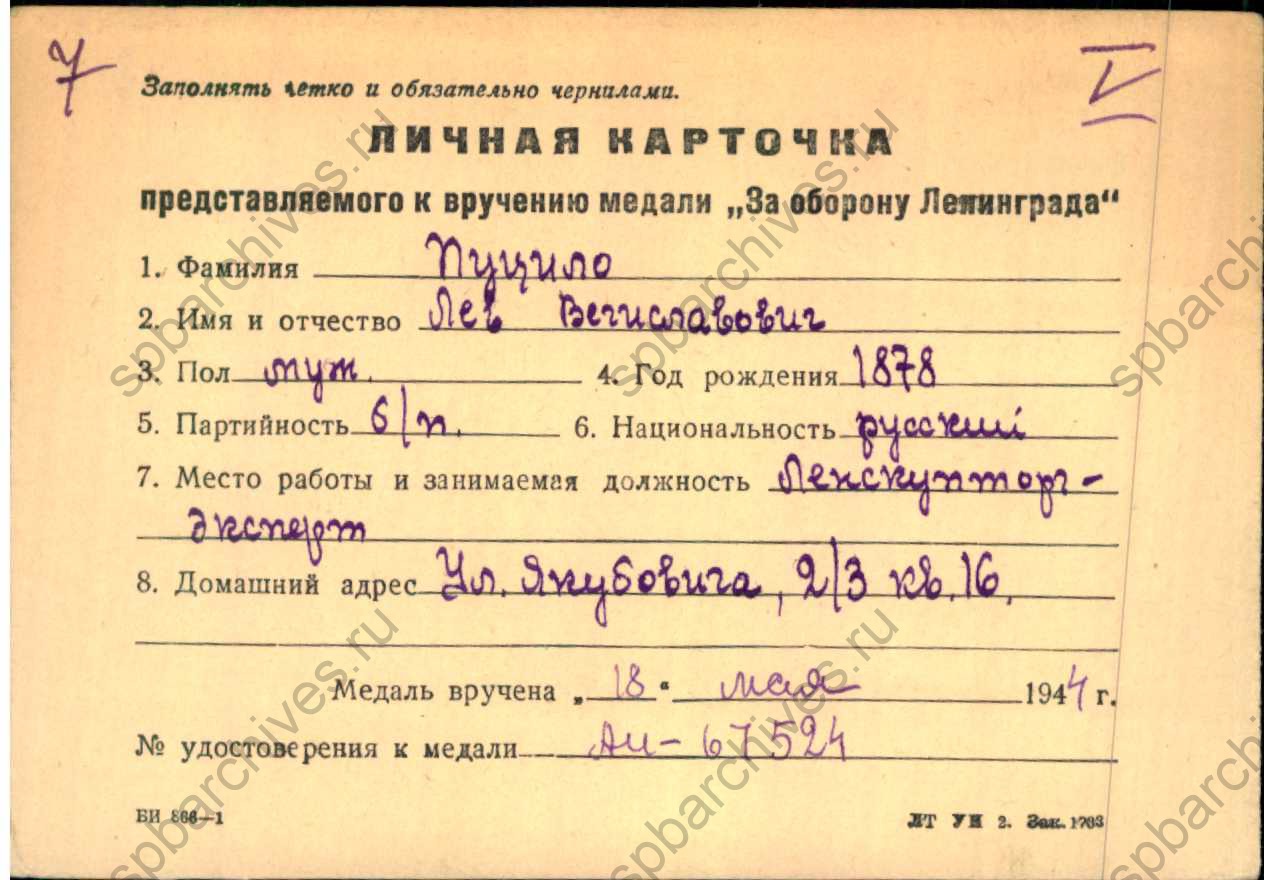 У V
Заполнять четко и обязательно чернилами.
ЛИЧНАЯ КАРТОЧКА
представляемого к вручению медали „За оборону Ленинграда“
1. Фамилия Пуцило
2. Имя и отчество Лев Вегиславович
3. Пол муж. 4. Год рождения 1878
5. Партийность б/п. 6. Национальность русский
7. Место работы и занимаемая должность Ленскупторг-
эксперт
8. Домашний адрес Ул. Якубовича, 2/3 кв. 16.
Медаль вручена „18“ мая 1944 г.
№ удостоверения к медали АИ-67524
БИ 866—1 ЛТ УН 2. Зак. 1703
spbarchives.ru